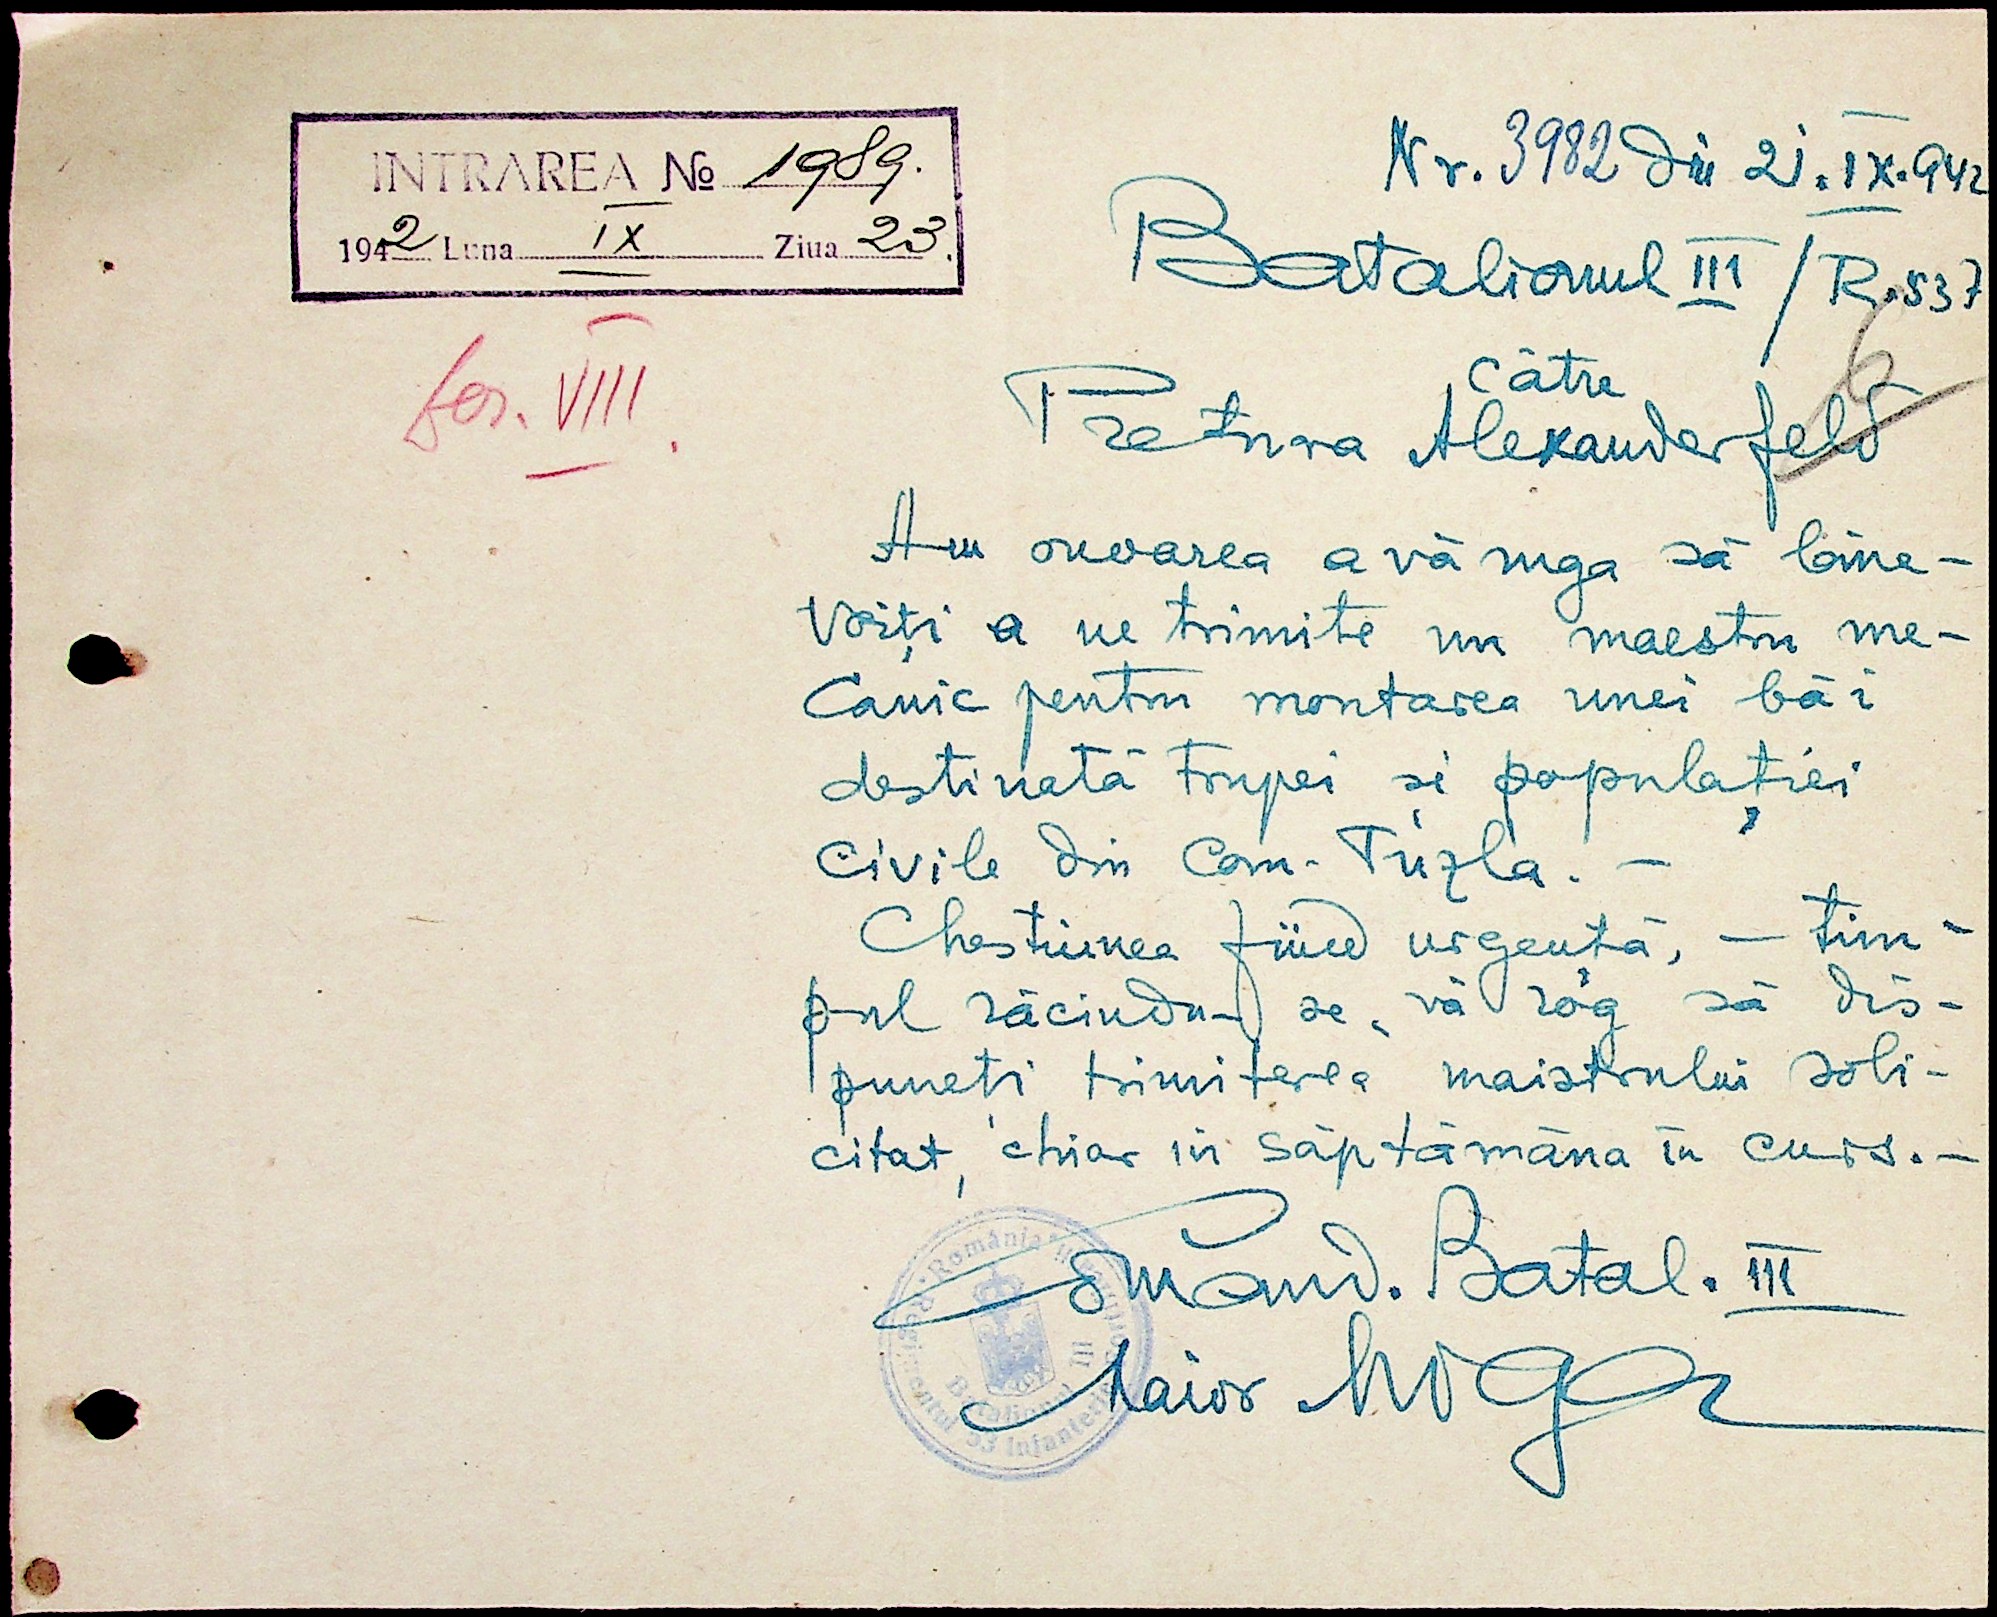 INTRAREA № 1989.
1942 Luna IX Ziua 23.
Nr. 3982 din 21.IX.942
Batalionul III / R.537
către
Pretura Alexanderfeld
6
VIII.
Am onoarea a vă ruga să bine-
voiți a ne trimite un maestru me-
canic pentru montarea unei băi
destinată trupei și populației
civile din com. Tuzla. –
Chestiunea fiind urgentă, – tim-
pul răcindu-se, vă rog să dis-
puneți trimiterea maistrului soli-
citat, chiar in săptămâna în curs. –
Comand. Batal. III
Maior
România
Regimentul 53 Infanterie
Batalionul III